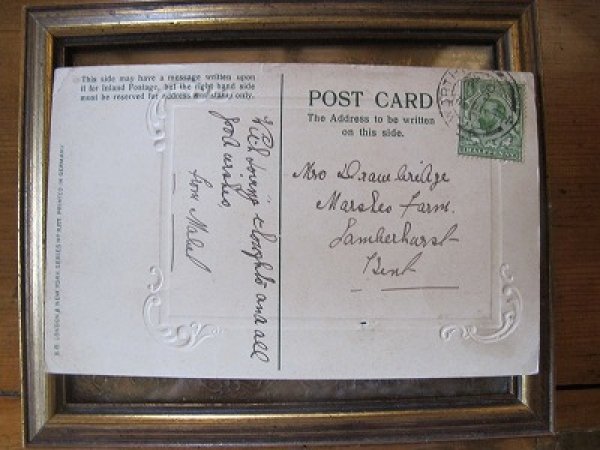 This side may have a message written upon
it for Inland Postage, but the right hand side
must be reserved for address and stamp only.
POST CARD
The Address to be written
on this side.
With loving thoughts and all
good wishes,
from Mabel
Mrs Drawbridge
Farm.
Lamberhurst
Kent
PRINTED IN GERMANY
LONDON & NEW YORK. SERIES